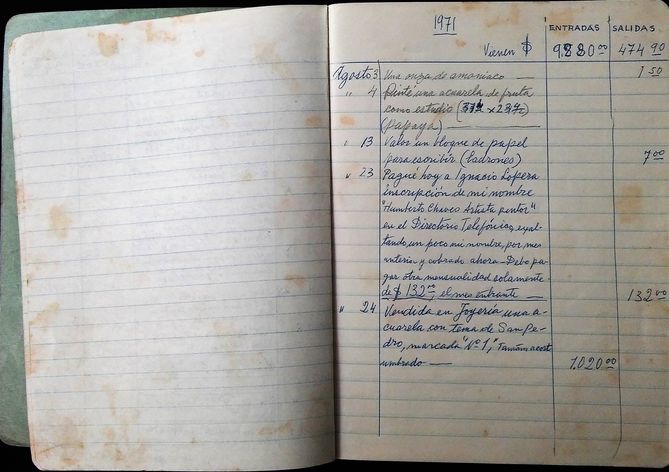 1971
ENTRADAS SALIDAS
Vienen $ 9.880 00 474 90
Agosto 3 Una onza de amoniaco — 1 50
" 4 Pinté una acuarela de fruta
como estudio
(Papaya) —
" 13 Valor un bloque de papel
para escribir (Ladrones) 7 00
" 23 Pagué hoy a Ignacio Lopera
inscripción de mi nombre
"Humberto Chaves Artista pintor"
en el Directorio Telefónico, exal-
tando un poco mi nombre, por mes
y cobrado ahora - Debo pa-
gar otra mensualidad solamente
de $ 132 00, el mes entrante — 132 00
" 24 Vendida en Joyería una a-
cuarela con tema de San Pe-
dro, marcada "Nº 1," Tamaño acost
umbrado — 1.020 00